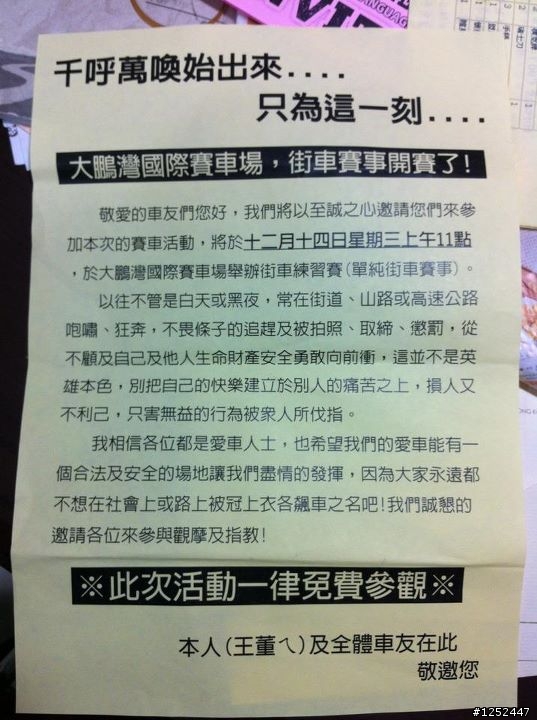 千呼萬喚始出來....
只為這一刻....
大鵬灣國際賽車場，街車賽事開賽了!
敬愛的車友們您好，我們將以至誠之心邀請您們來參
加本次的賽車活動，將於十二月十四日星期三上午11點
，於大鵬灣國際賽車場舉辦街車練習賽(單純街車賽事)。
以往不管是白天或黑夜，常在街道、山路或高速公路
咆嘯、狂奔，不畏條子的追趕及被拍照、取締、懲罰，從
不顧及自己及他人生命財產安全勇敢向前衝，這並不是英
雄本色，別把自己的快樂建立於別人的痛苦之上，損人又
不利己，只害無益的行為被衆人所伐指。
我相信各位都是愛車人士，也希望我們的愛車能有一
個合法及安全的場地讓我們盡情的發揮，因為大家永遠都
不想在社會上或路上被冠上衣各飆車之名吧!我們誠懇的
邀請各位來參與觀摩及指教!
※此次活動一律免費參觀※
本人(王董ㄟ)及全體車友在此
敬邀您
#1252447